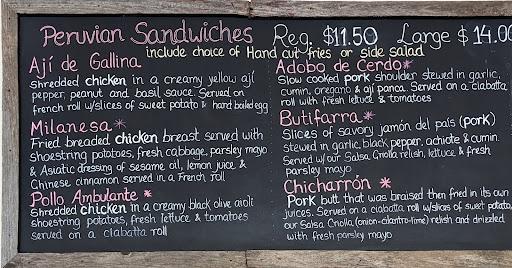 Peruvian Sandwiches Reg. $11.50 Large $14.00
include choice of Hand cut fries or side salad
Ají de Gallina
Shredded chicken in a creamy yellow ají
pepper, peanut and basil sauce. Served on
french roll w/slices of sweet potato & hard boiled egg
Milanesa *
Fried breaded chicken breast served with
shoestring potatoes, fresh cabbage, parsley mayo
& Asiatic dressing of sesame oil, lemon juice &
Chinese cinnamon served in a French roll
Pollo Ambulante *
Shredded chicken in a creamy black olive aioli
shoestring potatoes, fresh lettuce & tomatoes
served on a ciabatta roll
Adobo de Cerdo *
Slow cooked pork shoulder stewed in garlic,
cumin, oregano & ají panca. Served on a ciabatta
roll with fresh lettuce & tomatoes
Butifarra *
Slices of savory jamón del país (pork)
stewed in garlic, black pepper, achiote & cumin.
Served w/our Salsa Criolla relish, lettuce & fresh
parsley mayo
Chicharrón *
Pork butt that was braised then fried in its own
juices. Served on a ciabatta roll w/slices of sweet potato,
our Salsa Criolla (onion-cilantro-lime) relish and drizzled
with fresh parsley mayo